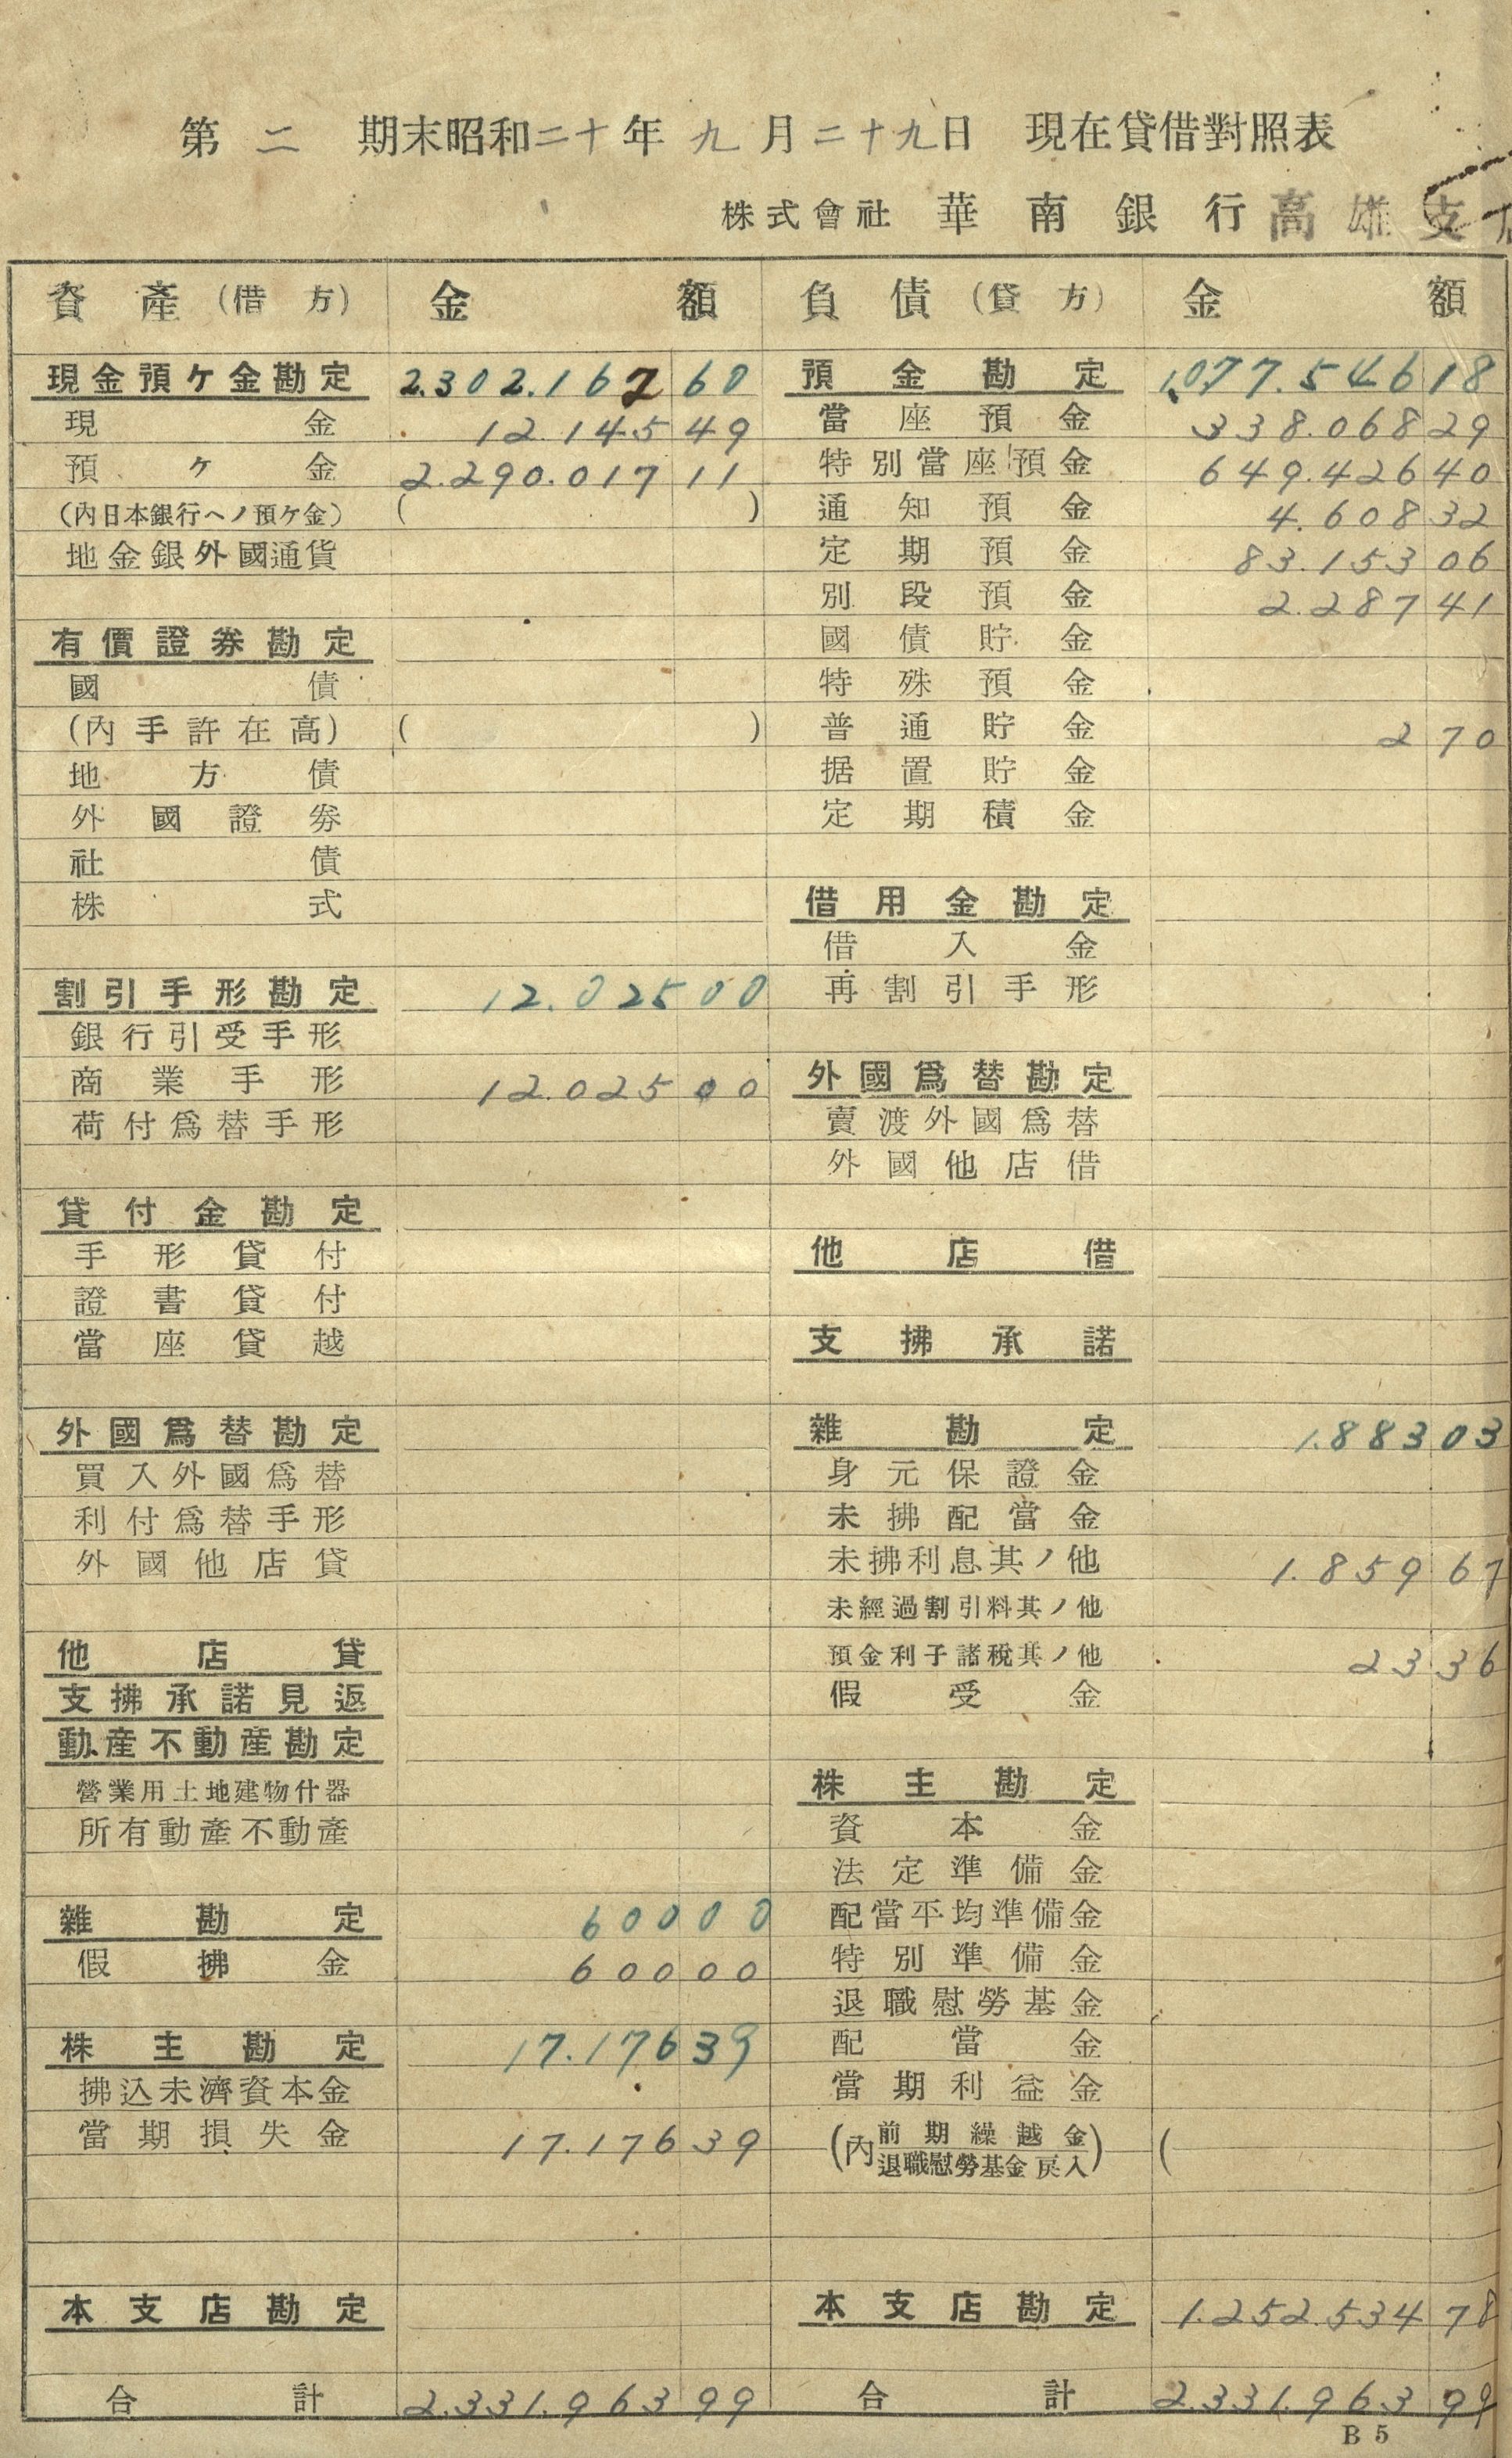 第二期末昭和二十年九月二十九日 現在貸借對照表
株式會社 華南銀行高雄支
資產(借方) 金額 負債(貸方) 金額
現金預ケ金勘定 2.302.162 60 預金勘定 1,077.546 18
現金 12.145 49 當座預金 338.068 29
預ケ金 2.290.017 11 特別當座預金 649.426 40
(內日本銀行ヘノ預ケ金) ( ) 通知預金 4.608 32
地金銀外國通貨 定期預金 83.153 06
別段預金 2.287 41
有價證券勘定 國債貯金
國債 特殊預金
(內手許在高) ( ) 普通貯金 2 70
地方債 据置貯金
外國證券 定期積金
社債
株式 借用金勘定
借入金
割引手形勘定 12.025 00 再割引手形
銀行引受手形
商業手形 12.025 00 外國爲替勘定
荷付爲替手形 賣渡外國爲替
外國他店借
貸付金勘定
手形貸付 他店借
證書貸付
當座貸越 支拂承諾
外國爲替勘定 雜勘定 1.883 03
買入外國爲替 身元保證金
利付爲替手形 未拂配當金
外國他店貸 未拂利息其ノ他 1.859 67
未經過割引料其ノ他
他店貸 預金利子諸稅其ノ他 23 36
支拂承諾見返 假受金
動產不動產勘定
營業用土地建物什器 株主勘定
所有動產不動產 資本金
法定準備金
雜勘定 600 00 配當平均準備金
假拂金 600 00 特別準備金
退職慰勞基金
株主勘定 17.176 39 配當金
拂込未濟資本金 當期利益金
當期損失金 17.176 39 (內前期繰越金 退職慰勞基金戾入) (
本支店勘定 本支店勘定 1.252.534 78
合計 2.331.963 99 合計 2.331.963 99
B 5